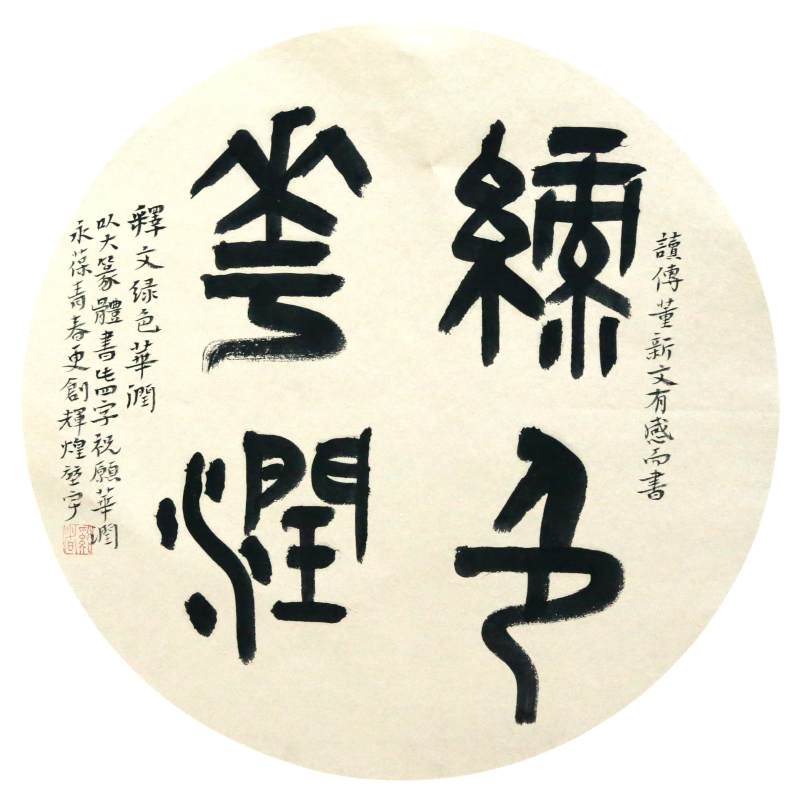 讀傅董新文有感而書
綠色
華潤
釋文绿色華潤
以大篆體書此四字祝願華潤
永葆青春更創輝煌